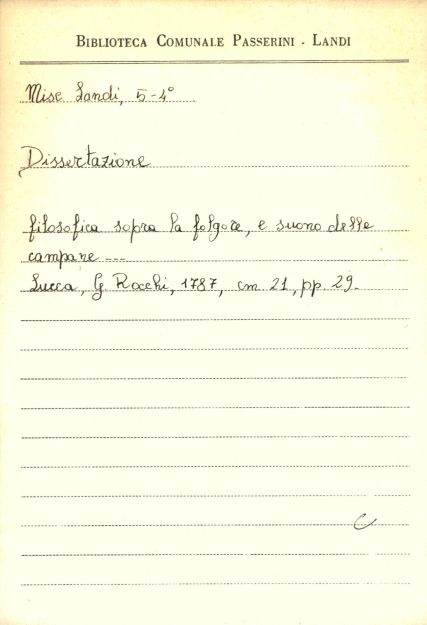 BIBLIOTECA COMUNALE PASSERINI - LANDI
Misc Landi, 5-4°
Dissertazione
filosofica sopra la folgore, e suono delle
campane ---
Lucca, G. Rocchi, 1787, cm 21, pp. 29.
C